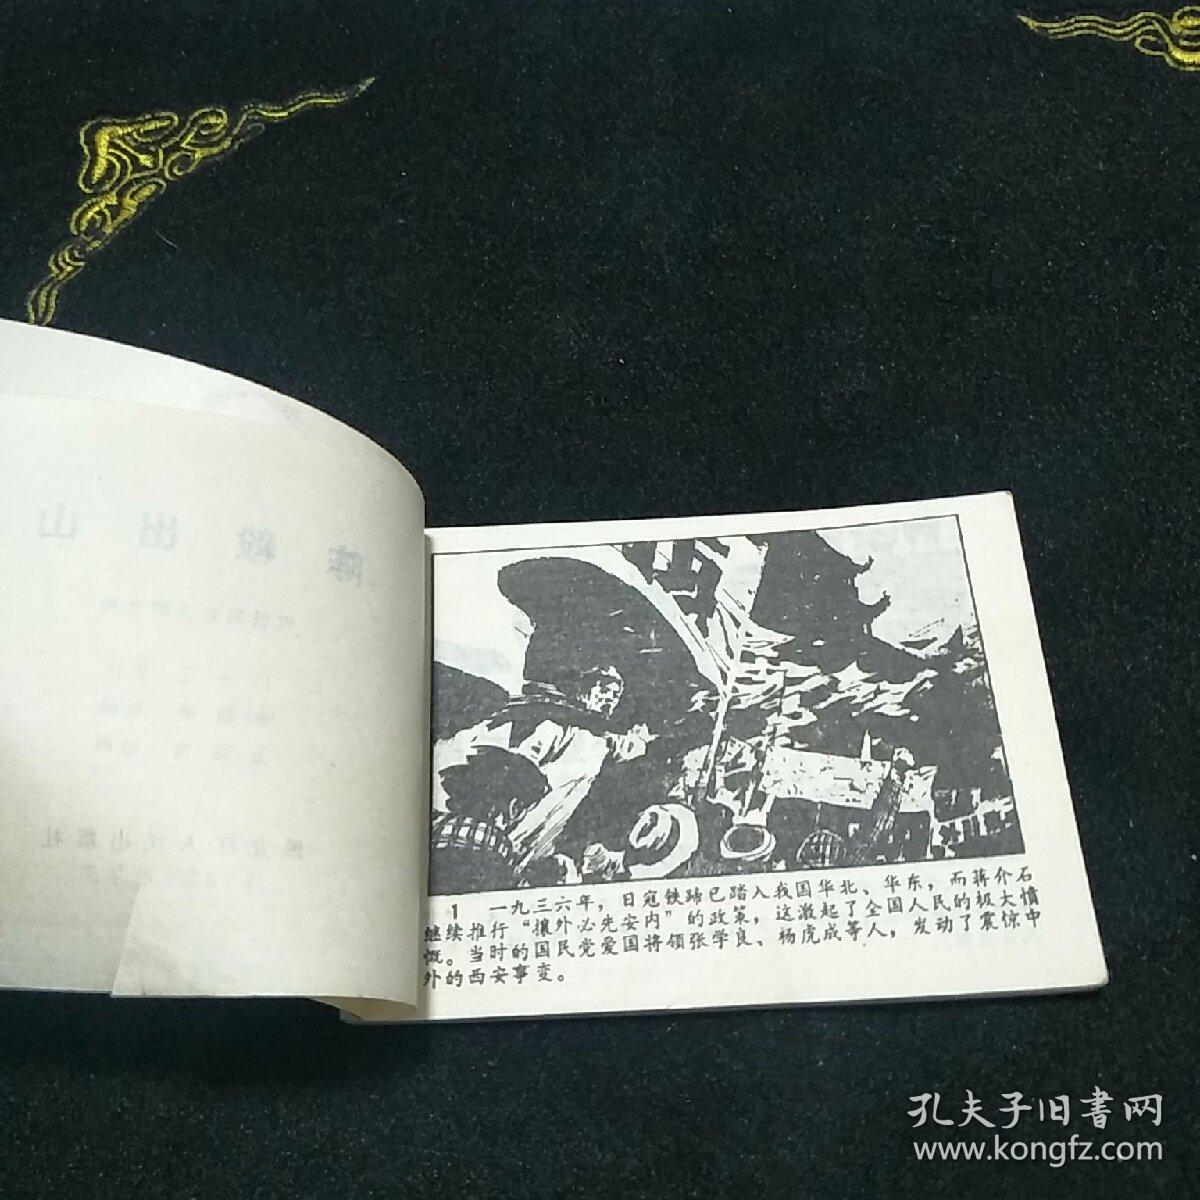 陈毅出山
黑龙江人民出版社
1 一九三六年，日寇铁蹄已踏入我国华北、华东，而蒋介石
继续推行“攘外必先安内”的政策，这激起了全国人民的极大愤
慨。当时的国民党爱国将领张学良、杨虎成等人，发动了震惊中
外的西安事变。
孔夫子旧書网
www.kongfz.com